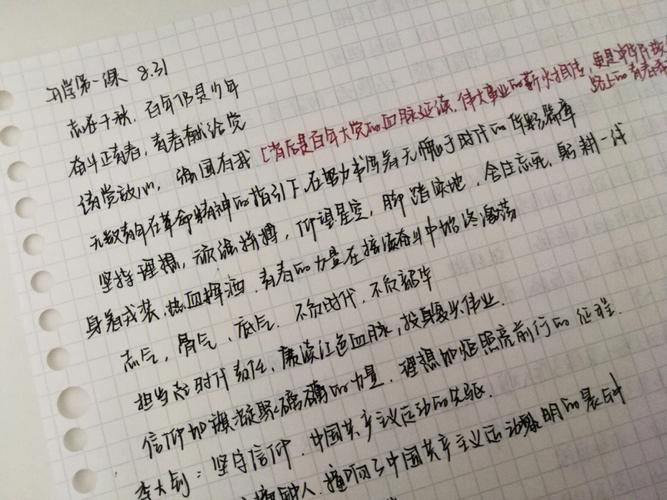 开学第一课 8.31
志在千秋,百年仍是少年
奋斗正青春,青春献给党
请党放心,强国有我 [背后是百年大党的血脉延续,伟大事业的薪火相传,更是
路上的青春
无数青年在革命精神的指引下,在努力书写着无愧于时代的华彩篇章
坚持理想,顽强拼搏,仰望星空,脚踏实地,舍生忘死,躬耕一线
身着戎装,热血挥洒.青春的力量在接续奋斗中始终激荡
志气,骨气,底气.不负时代,不负韶华
担当起时代责任,赓续红色血脉,投身复兴伟业.
信仰如磐凝聚磅礴的力量.理想如炬照亮前行的征程.
李大钊:坚守信仰.中国共产主义运动的先驱.
敲钟人.撞响了中国共产主义运动黎明的晨钟